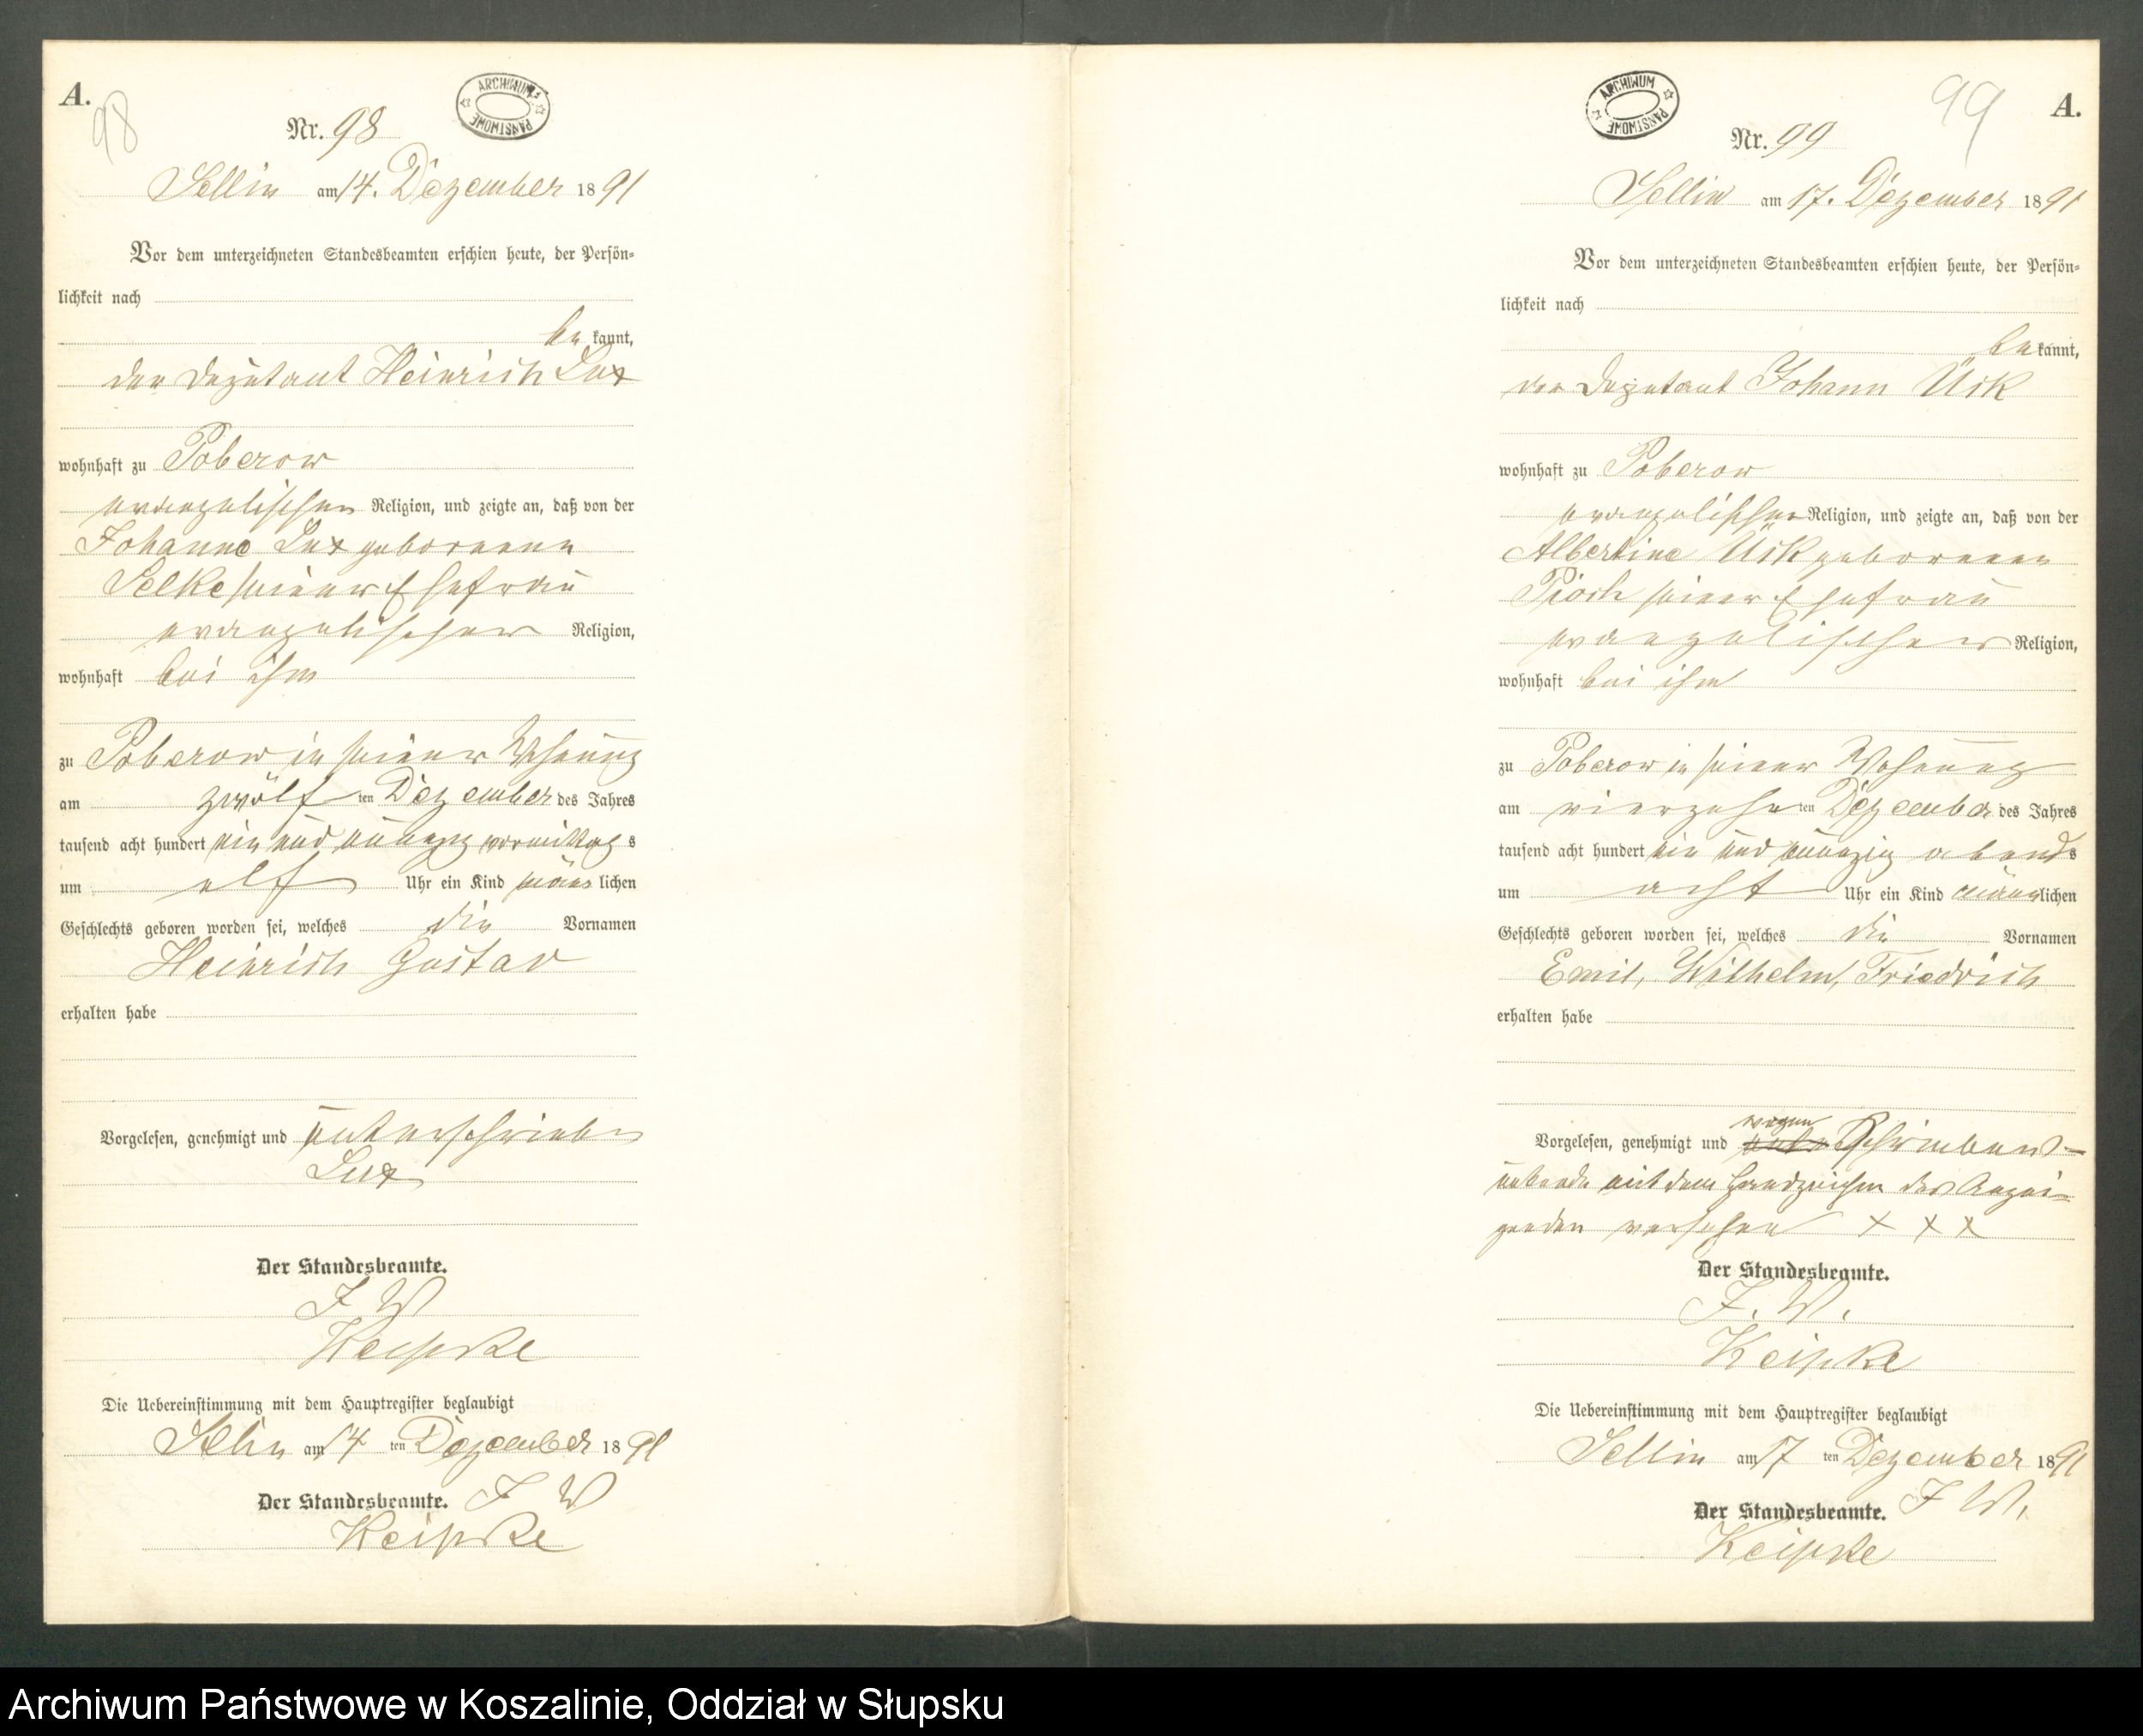 A.
98
Nr. 98
ARCHIWUM PAŃSTWOWE
Sellin am 14. Dezember 1891
Vor dem unterzeichneten Standesbeamten erschien heute, der Persön-
lichkeit nach
be kannt,
der Deputant Heinrich Lux
wohnhaft zu Poberow
evangelischer Religion, und zeigte an, daß von der
Johanne Lux geborenen
Selke seiner Ehefrau
evangelischer Religion,
wohnhaft bei ihm
zu Poberow in seiner Wohnung
am zwölf ten Dezember des Jahres
tausend acht hundert ein und neunzig vormittag s
um elf Uhr ein Kind männ lichen
Geschlechts geboren worden sei, welches die Vornamen
Heinrich Gustav
erhalten habe
Vorgelesen, genehmigt und unterschrieben
Lux
Der Standesbeamte.
I. W
Keipke
Die Uebereinstimmung mit dem Hauptregister beglaubigt
Sellin am 14 ten Dezember 1891
Der Standesbeamte. I W
Keipke
99
A.
ARCHIWUM PAŃSTWOWE
Nr. 99
Sellin am 17. Dezember 1891
Vor dem unterzeichneten Standesbeamten erschien heute, der Persön-
lichkeit nach
be kannt,
der Deputant Johann Ück
wohnhaft zu Poberow
evangelischer Religion, und zeigte an, daß von der
Albertine Ück geborenen
Pioch seiner Ehefrau
evangelischer Religion,
wohnhaft bei ihm
zu Poberow in seiner Wohnung
am vierzehn ten Dezember des Jahres
tausend acht hundert ein und neunzig abends
um acht Uhr ein Kind männ lichen
Geschlechts geboren worden sei, welches die Vornamen
Emil, Wilhelm, Friedrich
erhalten habe
wegen
Vorgelesen, genehmigt und Schreibens-
unkunde mit dem Handzeichen des Anzei-
genden versehen X X X
Der Standesbeamte.
I. W.
Keipke
Die Uebereinstimmung mit dem Hauptregister beglaubigt
Sellin am 17 ten Dezember 1891
Der Standesbeamte. I W.
Keipke
Archiwum Państwowe w Koszalinie, Oddział w Słupsku